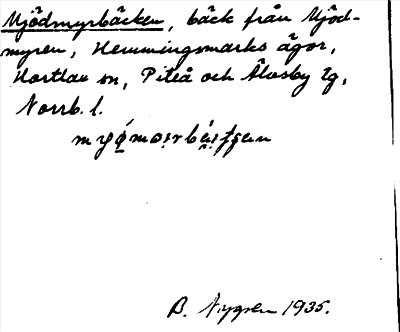 Mjödmyrbäcken, bäck från Mjöd-
myren, Hemmingsmarks ägor,
Hortlax sn, Piteå och Älvsby tg,
Norrb. l.
B. Nygren 1935.